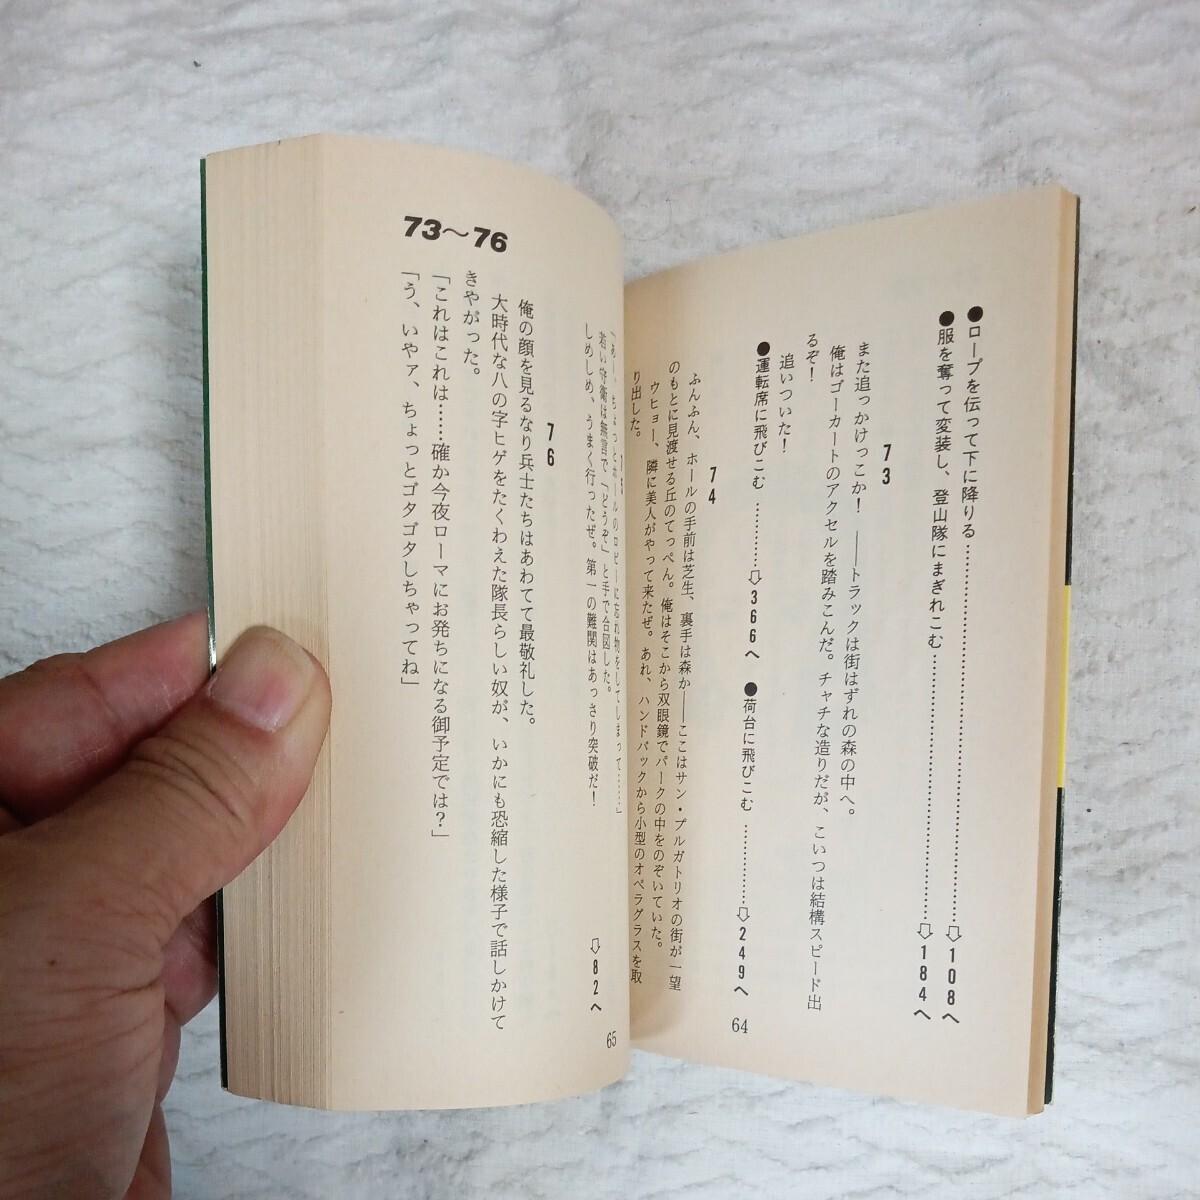 ●ロープを伝って下に降りる……………………⇩108へ
●服を奪って変装し、登山隊にまぎれこむ……………⇩184へ
73
また追っかけっこか！――トラックは街はずれの森の中へ。
俺はゴーカートのアクセルを踏みこんだ。チャチな造りだが、こいつは結構スピード出
るぞ！
追いついた！
●運転席に飛びこむ…………⇩366へ　●荷台に飛びこむ…………⇩249へ
74
ふんふん、ホールの手前は芝生、裏手は森か――ここはサン・プルガトリオの街が一望
のもとに見渡せる丘のてっぺん。俺はそこから双眼鏡でパークの中をのぞいていた。
ウヒョー、隣に美人がやって来たぜ。あれ、ハンドバックから小型のオペラグラスを取
り出した。
64
73〜76
ちょっとホールのロビーに忘れ物をしてしまって……」
若い守衛は無言で「どうぞ」と手で合図した。
しめしめ、うまく行ったぜ。第一の難関はあっさり突破だ！
⇩82へ
76
俺の顔を見るなり兵士たちはあわてて最敬礼した。
大時代な八の字ヒゲをたくわえた隊長らしい奴が、いかにも恐縮した様子で話しかけて
きやがった。
「これはこれは……確か今夜ローマにお発ちになる御予定では？」
「う、いやァ、ちょっとゴタゴタしちゃってね」
65